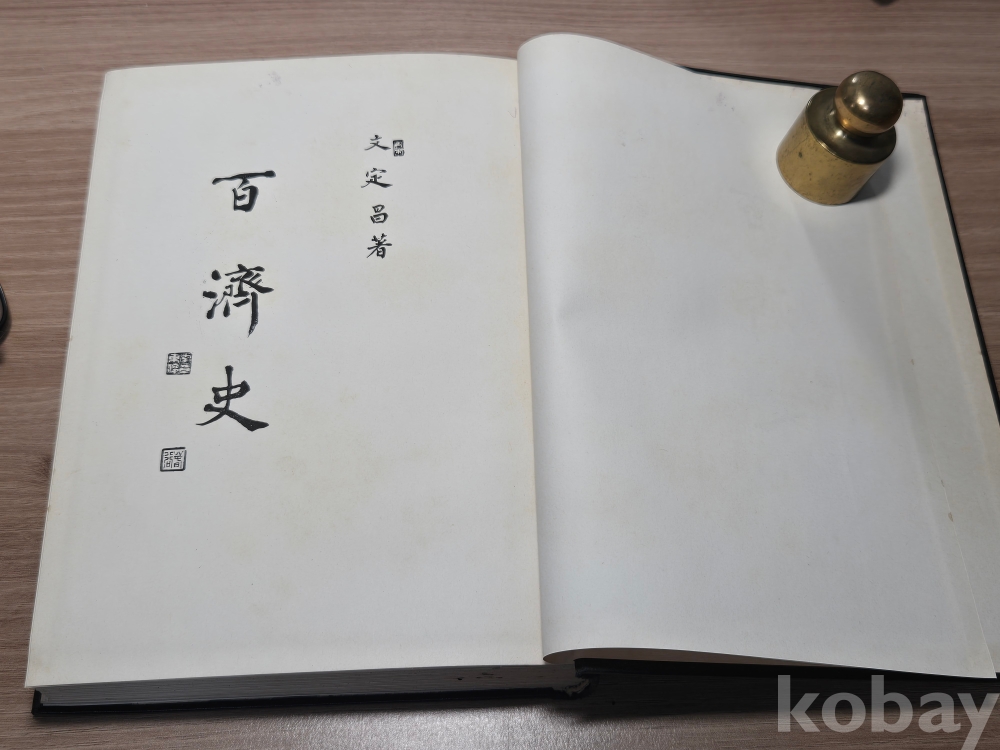 文定昌著
百濟史
kobay